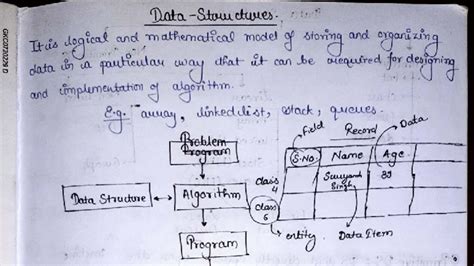 Data-Structures.
It is logical and mathematical model of storing and organizing
data in a particular way that it can be required for designing
and implementation of algorithm.
E.g. array, linked list, stack, queues.
Field
Record
Data
Problem
Program
S.No.
Name
Age
Class
4
Singh
Data Structure
Algorithm
Class
6
Program
entity
Data Item